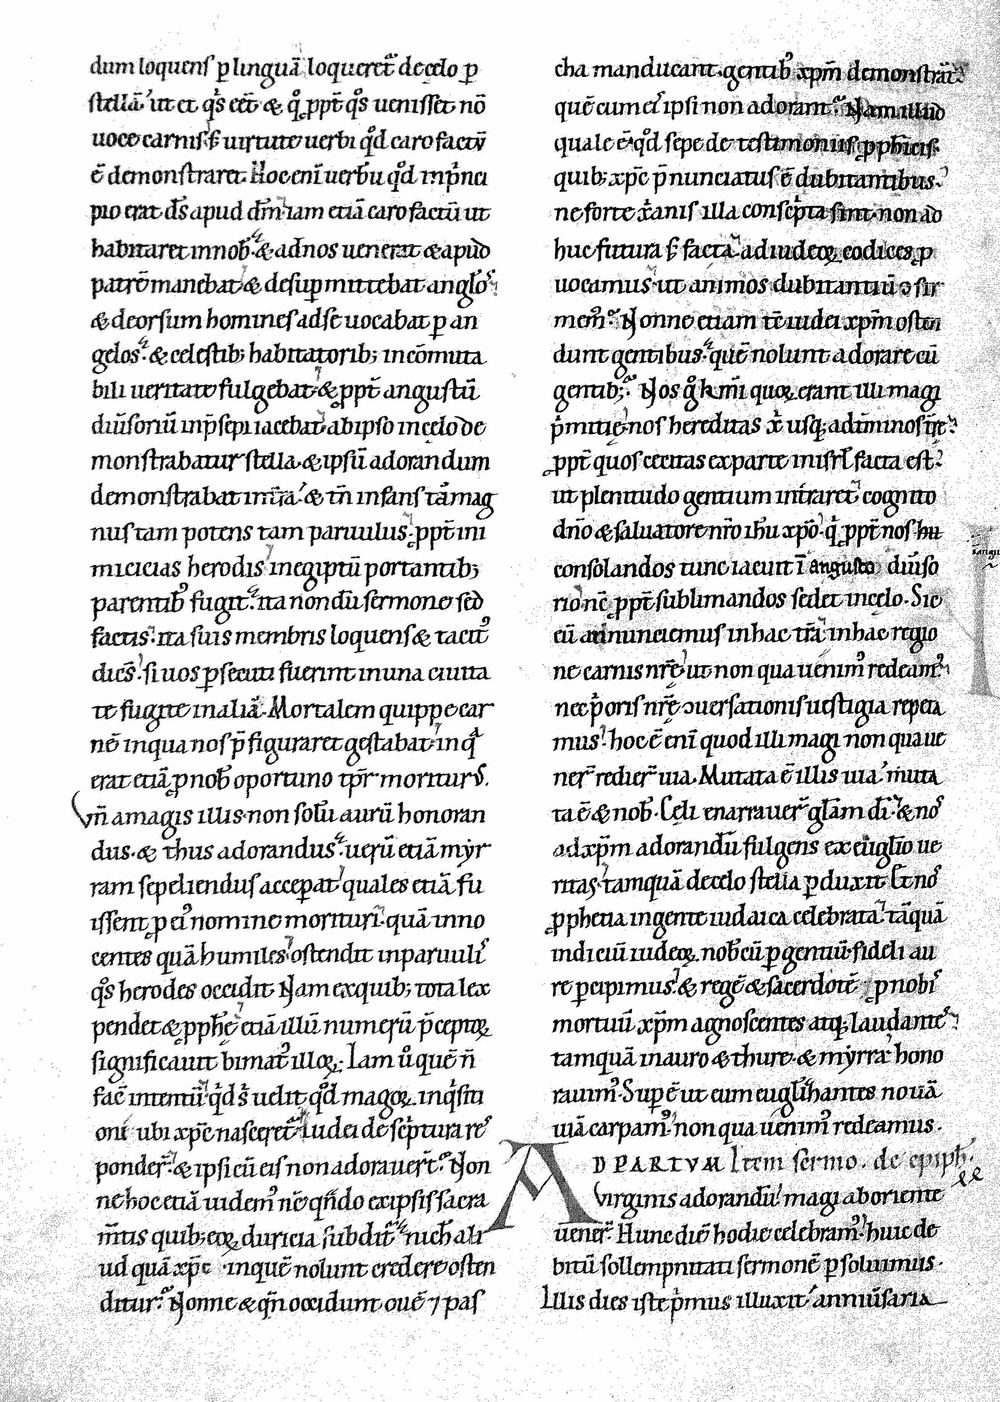 dum loquens ꝑ linguā loqueret᷑ de celo ꝑ
stellā. ut et q̇s eēt & qͦ ꝓpt̄ qͦs uenisset nō
uoce carnis. s; uirtute uerbi qͦd caro factū
ē demonstraret. Hoc eni uerbū qͦd inp̄nci
pio erat dˉs apud dˉm iam etiā caro factū ut
habitaret innob̄. & adnos uenerat & apud
patrē manebat & desuꝑ mittebat angl̄oˢ
& deorsum homines adse uocabat ꝑ an
gelos. & celestib; habitatorib; incōmuta
bili ueritate fulgebat. & ꝓpt̄ angustū
diūsoriū inp̄sepi iacebat. ab ipso incelo de
monstrabatur stella. & ipsū adorandum
demonstrabat inīra. & tn̄ infans tā mag
nus tam potens tam paruulus. ꝓpt̄ ini
micicias herodis inegiptū portantib;
parentib᷒ fugit. ita nondū sermone sed
factis. ita suis membris loquens & tacit᷒
dicēs. si uos ꝑsecuti fuerint inuna ciuita
te fugite inaliā. Mortalem quippe car
nē inqua nos p̄figuraret gestabat. inq̄
erat etiā ꝓ nob̄ oportuno tp̄r moritur᷒.
Vn̄ amagis illis non solū aurū honoran
dus. & thus adorandus. uerū etiā mẏr
ram sepeliendus accepat. quales etiā fu
issent ꝓ ei᷒ nomine morituri. quā inno
centes quā humiles ostendit inparuulis
qͦs herodes occidit. Nam exquib; tota lex
pendet & ꝓphē. etiā illū numerū p̄ceptoꝝ
significauit bimat᷒ illoꝝ. Iam ūo quē n̄
facē intentū qͥd s̄ uelit qͦd magoꝝ inqͥsiti
oni ubi xp̄c nasceret᷑. Iudei de scͥptura reˢ
ponder̄. & ipsi cū eis non adorauer̄t. Non
ne hoc etiā uidem᷒ nē qn̄do exipsis sacra
m̄tis quib; eoꝝ duricia subdit᷑. nich ali
ud quā xp̄c inquē nolunt credere osten
ditur. Nonne & qn̄ occidunt ouē ⁊ pas
cha manducant. gentib᷒ xp̄m demonstrāt.
quē cum eͥ ipsi non adorant. Nam illud
quale ē. qͦd sepe de testimoniis ꝓpheicis.
quib; xp̄c p̄nunciatus ē dubitantibus.
ne forte xͥanis illa conscͥpta sint. non ad
huc futura s; facta. ad iudeoꝝ codices ꝓ
uocamus. ut animos dubitantiū ↄfir
mem᷒. Nonne etiam tē iudei xp̄m osten
dunt gentibus. quē nolunt adorare cū
gentib;. Nos gͦ kr̄mi quoꝝ erant illi magi
pͥmitie. nos hereditas xͥ usq; adt̄minos tr̄e.
ꝓpt̄ quos cecitas exparte inisrl̄ facta est.
ut plenitudo gentium int̄raret. cognito
dn̄o & saluatore nr̄o ihū xp̄o. qͥ ꝓpt̄ nos hu
consolandos tunc iacuit ī angusto diūso
rio nc̄ ꝓpt̄ sublimandos sedet incelo. Sic
eū annunciemus inhac trā. inhac regio
ne carnis nr̄e. ut non qua uenim᷒ redeam᷒
nec pͥoris nr̄e ↄuersationis uestigia repeta
mus. hoc ē eni quod illi magi non qua ue
ner̄ redier̄ uia. Mutata ē illis uia. mīta
ta ē & nob̄. Celi enarrauer̄ glām dī. & noˢ
adxp̄m adorandū fulgens ex eūglīo ue
ritas. tamquā decelo stella ꝑduxit. Et noˢ
ꝓphetia ingente iudaica celebrata. tāquā
indiciū iudeoꝝ nob̄ cū ꝑ gentiū fideli au
re ꝑcipimus. & regē & sacerdotē. ⁊ ꝓ nobis
mortuū xp̄m agnoscentes atq; laudanteˢ.
tamquā inauro & thure. & mẏrra hono
rauim᷒. Supē ut eum eugl̄ihantes nouā
uiā carpam᷒. non qua uenim᷒ redeamus.
AD PARTVM Item sermo. de epiph̄.
virginis adorandū magi aboriente
uener̄. Hunc diē hodie celebram᷒. huic de
bitū sollempnitati sermonē ꝑsoluimus.
Illis dies iste pͥmus illuxit. anniūsaria